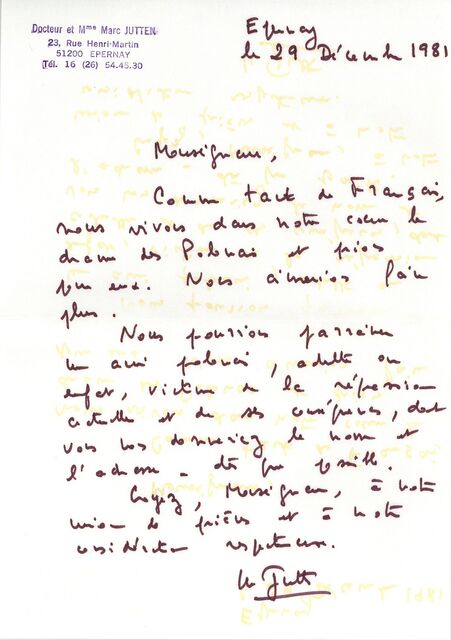 Docteur et Mme Marc JUTTEN
23, Rue Henri-Martin
51200 EPERNAY
Tél. 16 (26) 54.45.30
Epernay
le 29 Décembre 1981
Monseigneur,
Comme tant de Français,
nous vivons dans notre coeur le
drame des Polonais et prions
pour eux. Nous aimerions faire
plus.
Nous pourrions parrainer
un ami polonais, adulte ou
enfant, victime de la répression
actuelle et de ses conséquences, dont
vous nous donneriez le nom et
l'adresse dès que possible.
Croyez, Monseigneur, à notre
union de prières et à notre
considération respectueuse.
M Jutten